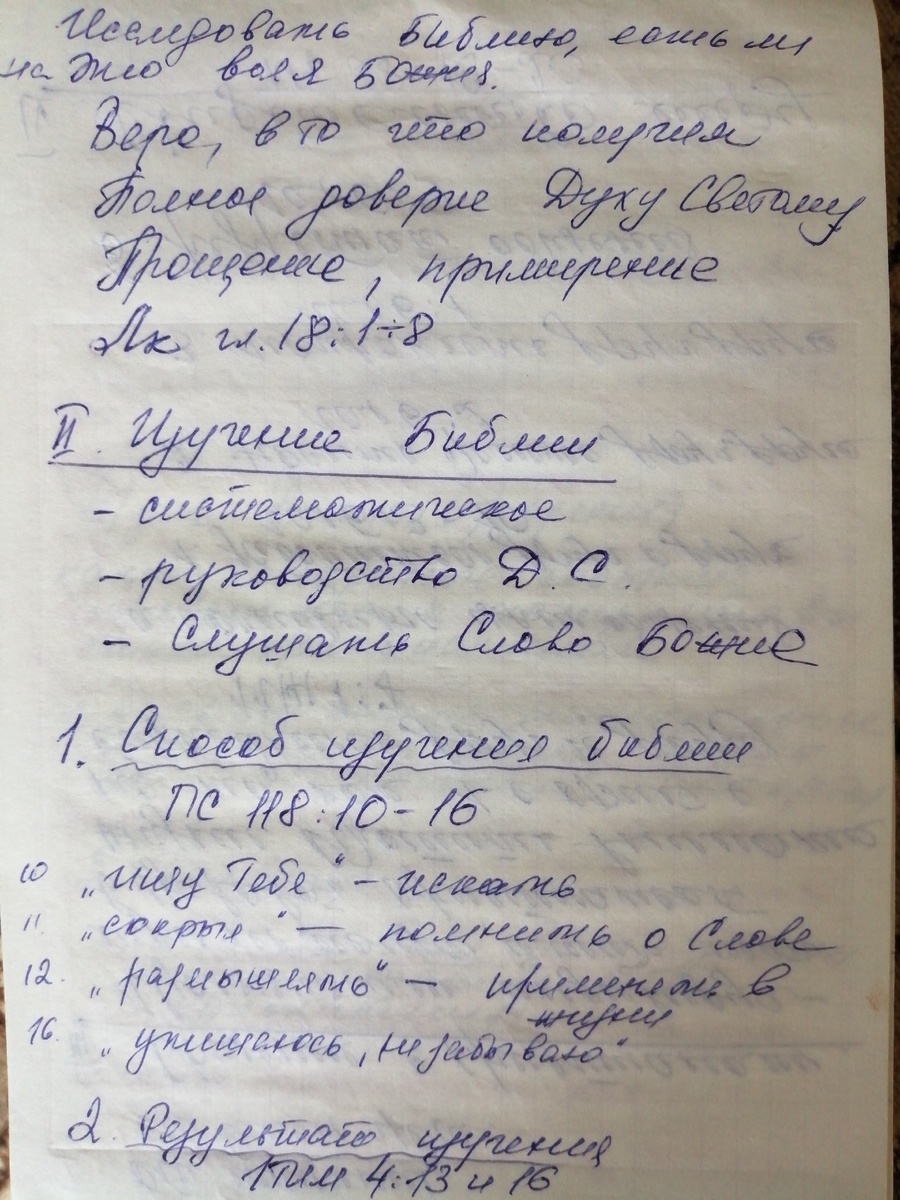 Исследовать Библию, есть ли
на это воля Божия.
Вера, в то что получим
Полное доверие Духу Светому
Прощение, примирение
Лк гл. 18:1÷8
II. Изучение Библии
- систематическое
- руководство Д.С.
- Слушать Слово Божие
1. Способ изучения библии
ПС 118:10-16
10 „ищу Тебя" - искать
11. „сокрыл" — помнить о Слове
12. „размышлять" — применять в
жизни
16. „утешаюсь, не забываю"
2. Результат изучения
1 Тим 4:13 и 16